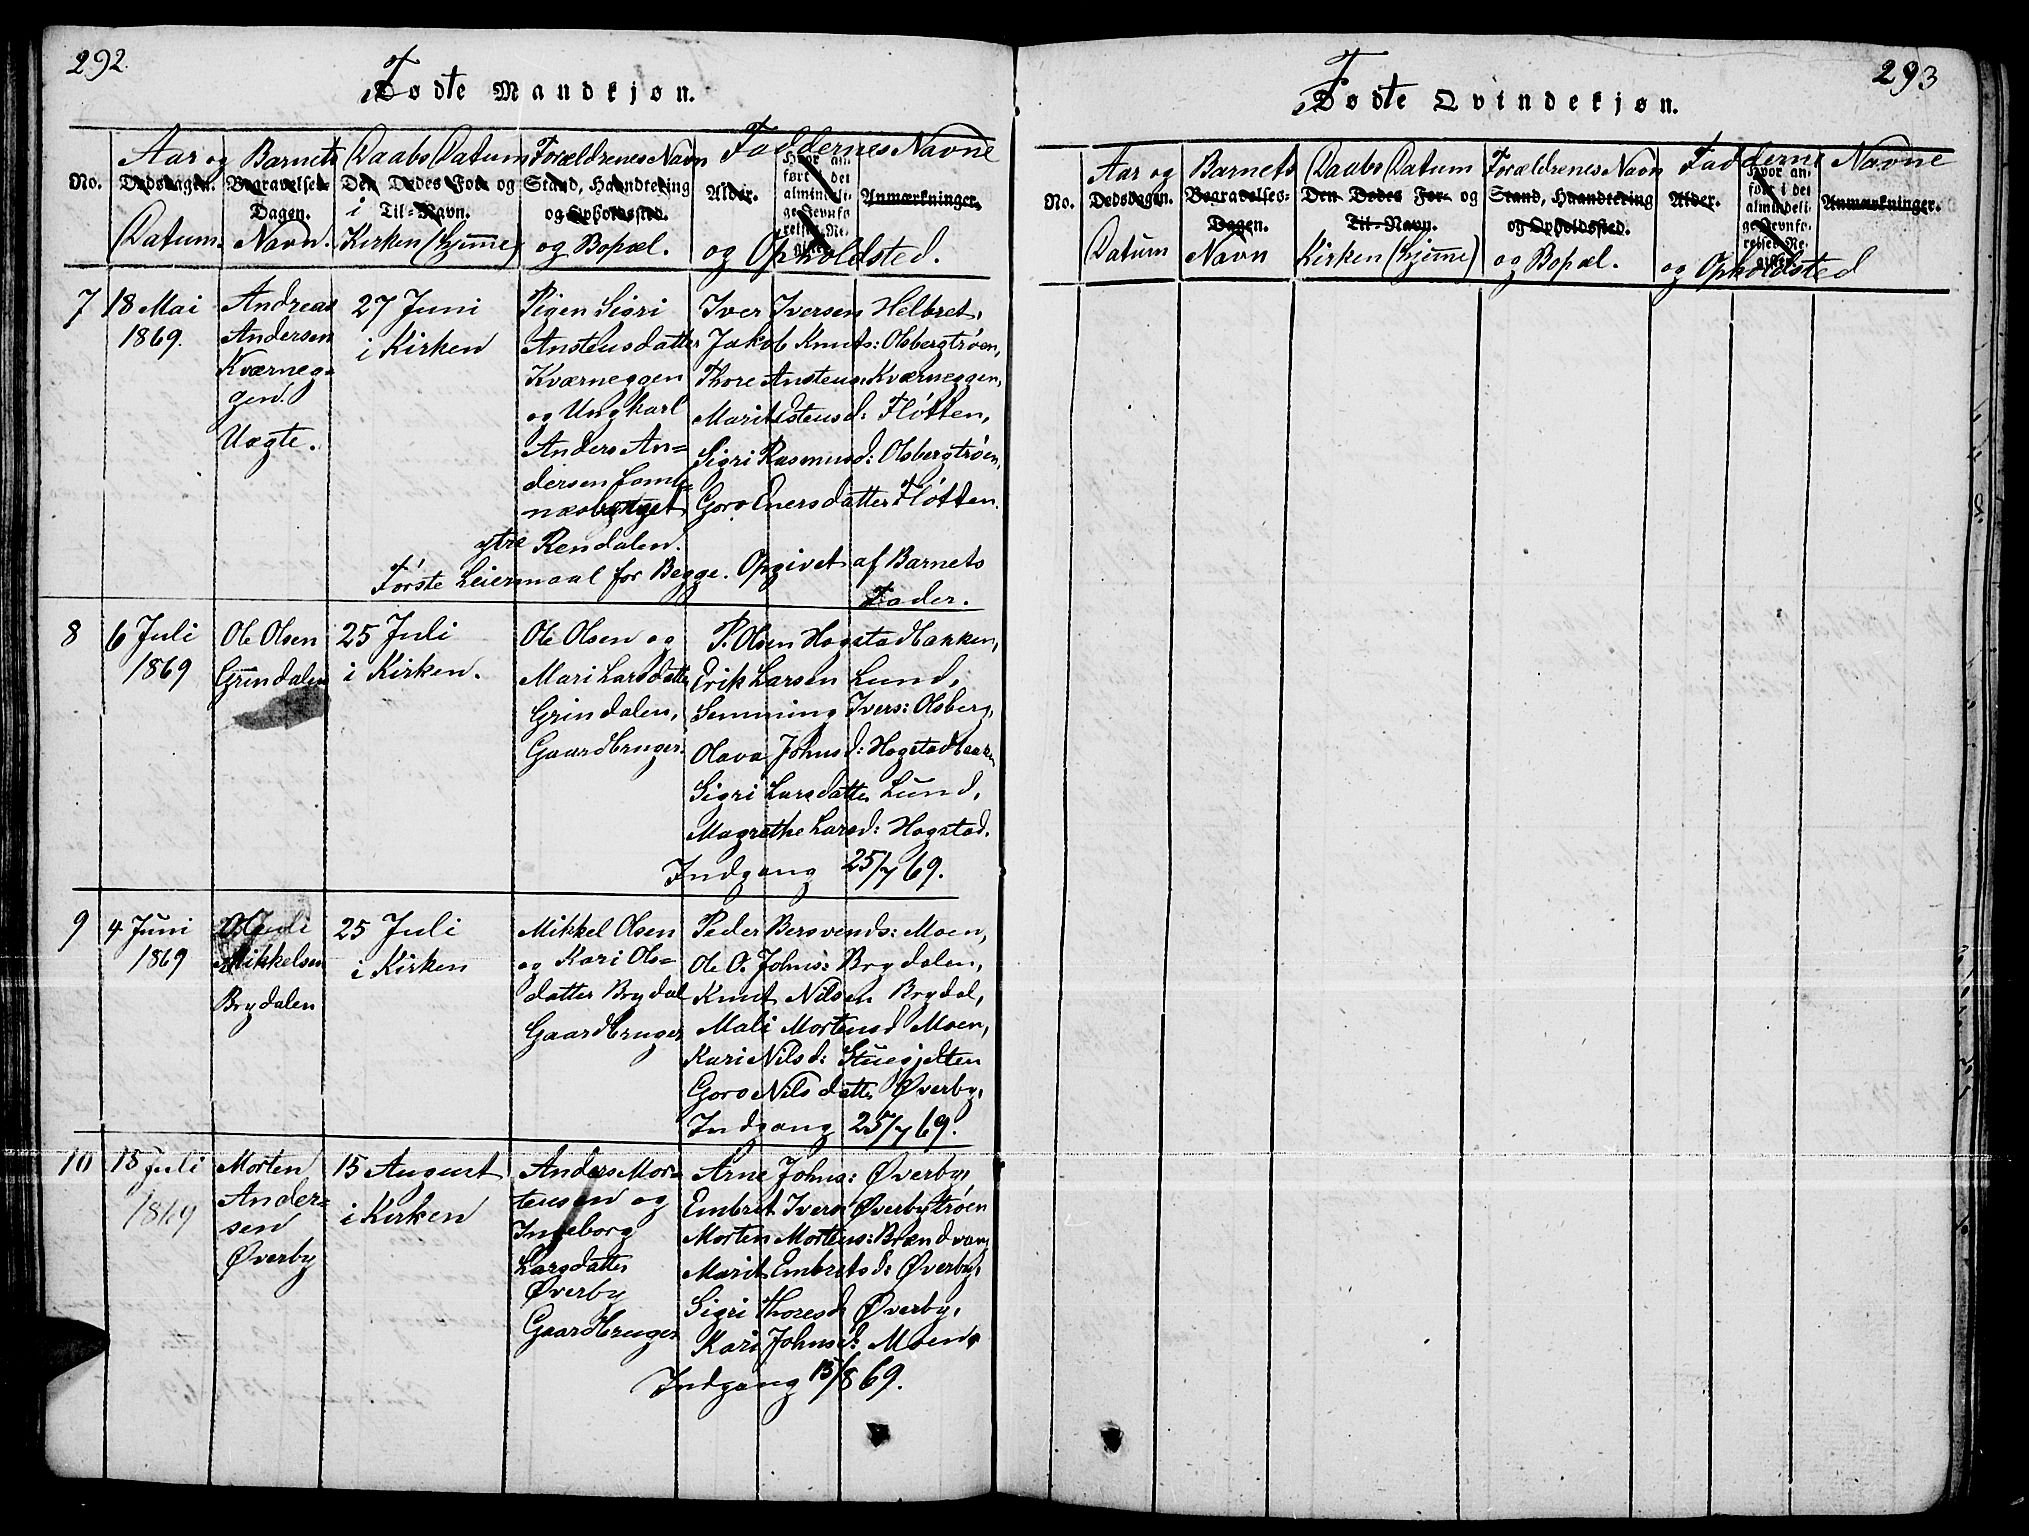 292.
Fødte Mandkjøn.
No.
Aar og Dødsdagen. Datum.
Barnets Begravelses-Dagen. Navn.
Daabs Datum Den Dødes For- og Til-Navn. i Kirken (hjemme)
Forældrenes Navn Stand, Haandtering og Opholdssted. og Bopæl.
Faddernes Navne og Opholdsted.
Alder.
Hvor anført i det almindelige Jevnførelses-Register.
Anmærkninger.
7
18 Mai
1869.
Andreas
Andersen
Kværneg-
gen.
Uægte.
27 Juni
i Kirken
Pigen Sigri
Anstensdatter
Kværneggen
og Ungkarl
Anders An-
dersen
ytre Rendalen.
Iver Iversen Helbret,
Jakob Knuts: Olsbergtrøen,
Thore Anstens: Kværneggen,
Marit Estensd: Fløtten,
Sigri Rasmusd: Olsbergtrøen,
Goro Enersdatter Fløtten.
Første Leiermaal for Begge. Opgivet af Barnets
Fader.
8
6 Juli
1869
Ole Olsen
Grindalen
25 Juli
i Kirken.
Ole Olsen og
Mari Larsdatter
Grindalen,
Gaardbruger.
P. Olsen Hogstadbakken,
Erik Larsen Lund,
Semming Ivers: Olsberg,
Olava Johnsd: Hogstadbakken
Sigri Larsdatter Lund,
Magrethe Larsd: Hogstad.
Indgang 25/7 69.
9
4 Juni
1869
Mikkelsen
Brydalen
25 Juli
i Kirken
Mikkel Olsen
og Kari Ols-
datter Brydal
Gaardbruger
Peder Bersvends: Moen,
Ole O. Johns: Brydalen,
Knut Nilsen Brydal,
Mali Mortensd Moen,
Kari Nilsd: Stuegjelten
Goro Nilsdatter Øverby,
Indgang 25/7 69.
10
15 Juli
1869
Morten
Ander-
sen
Øverby
15 August
i Kirken
Anders Mor-
tensen og
Ingeborg
Larsdatter
Øverby
Gaardbruger
Arne Johns: Øverby,
Embret Ivers: Øverbytrøen
Morten Mortens: Brændvang
Marit Embretsd: Øverby,
Sigri Thoresd: Øverby,
Kari Johnsd: Moen,
Indgang 15/8 69.
293
Fødte Qvindekjøn.
No.
Aar og Dødsdagen. Datum
Barnets Begravelses-Dagen. Navn
Daabs Datum Den Dødes For- og Til-Navn. Kirken (hjemme)
Forældrenes Navn Stand, Haandtering og Opholdssted. og Bopæl.
Faddernes Navne og Opholdsted
Alder.
Hvor anført i det almindelige Jevnførelses-Register.
Anmærkninger.